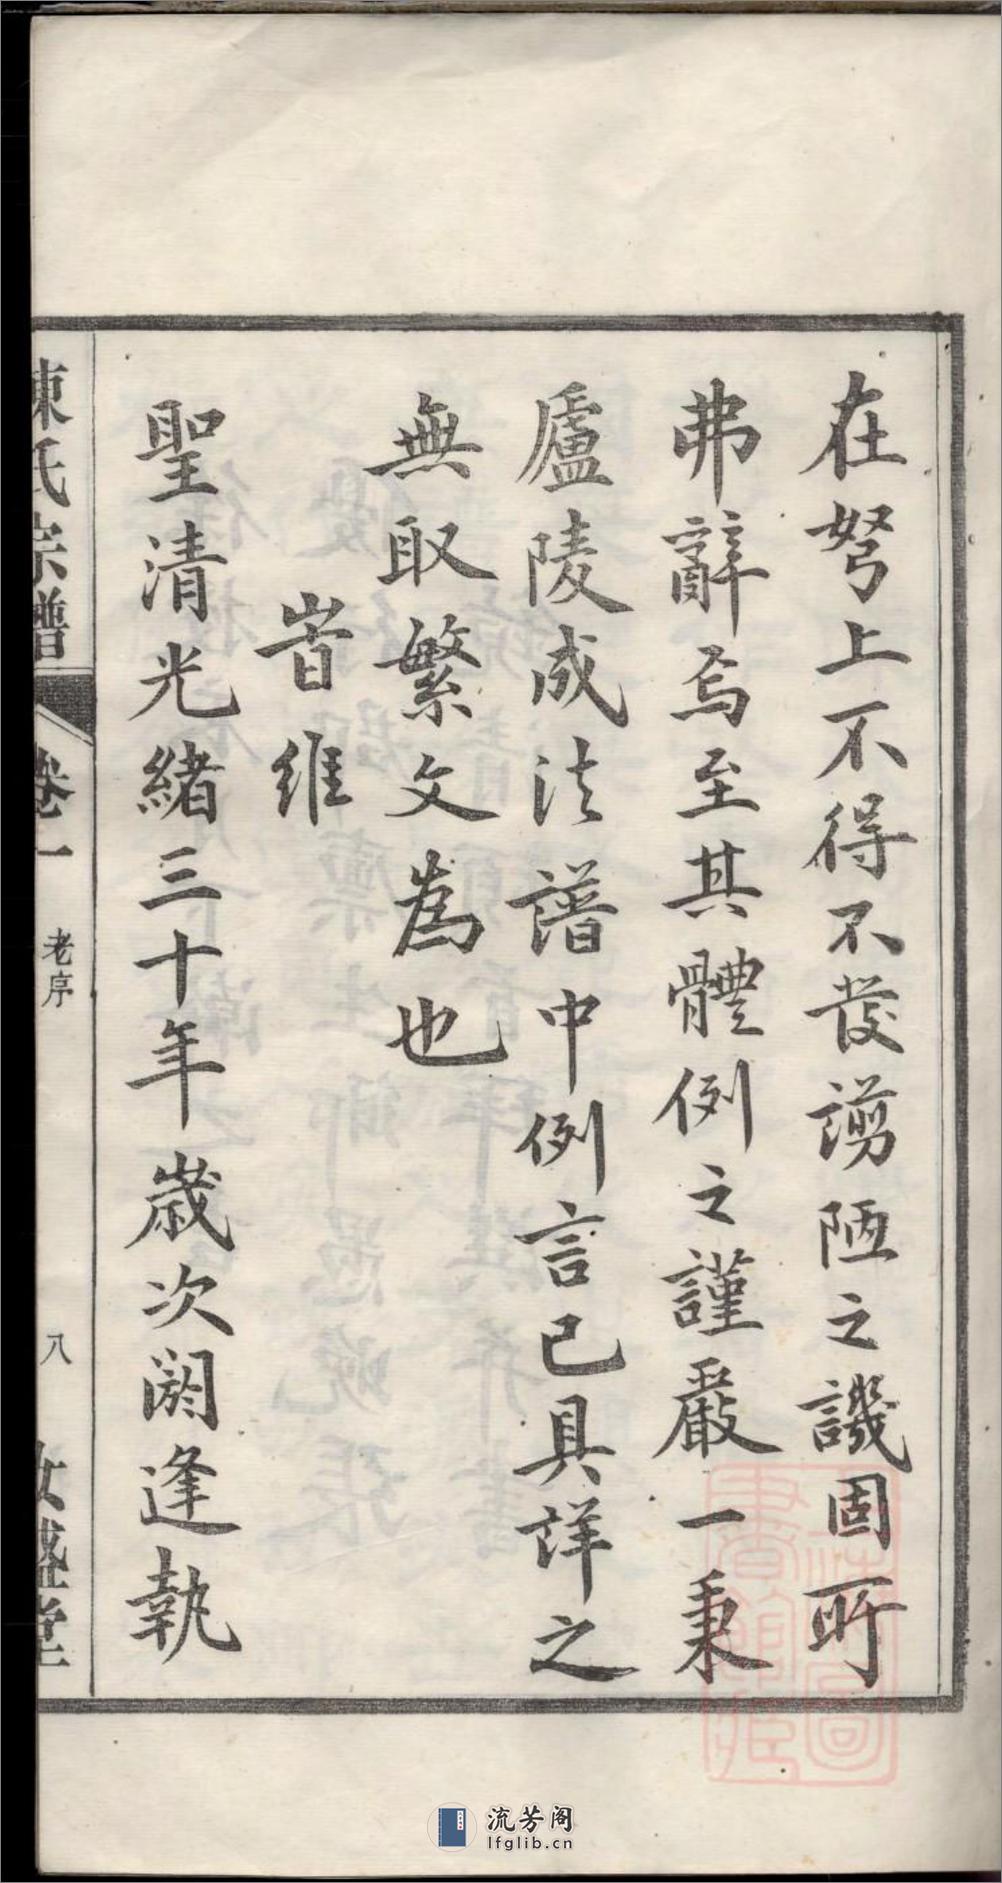 在弩上不得不發謭陋之譏固所
弗辭焉至其體例之謹嚴一秉
廬陵成法譜中例言已具詳之
無取繁文為也
旹維
聖清光緒三十年歲次閼逢執
陳氏宗譜
卷一
老序
八
流芳阁
lfglib.cn